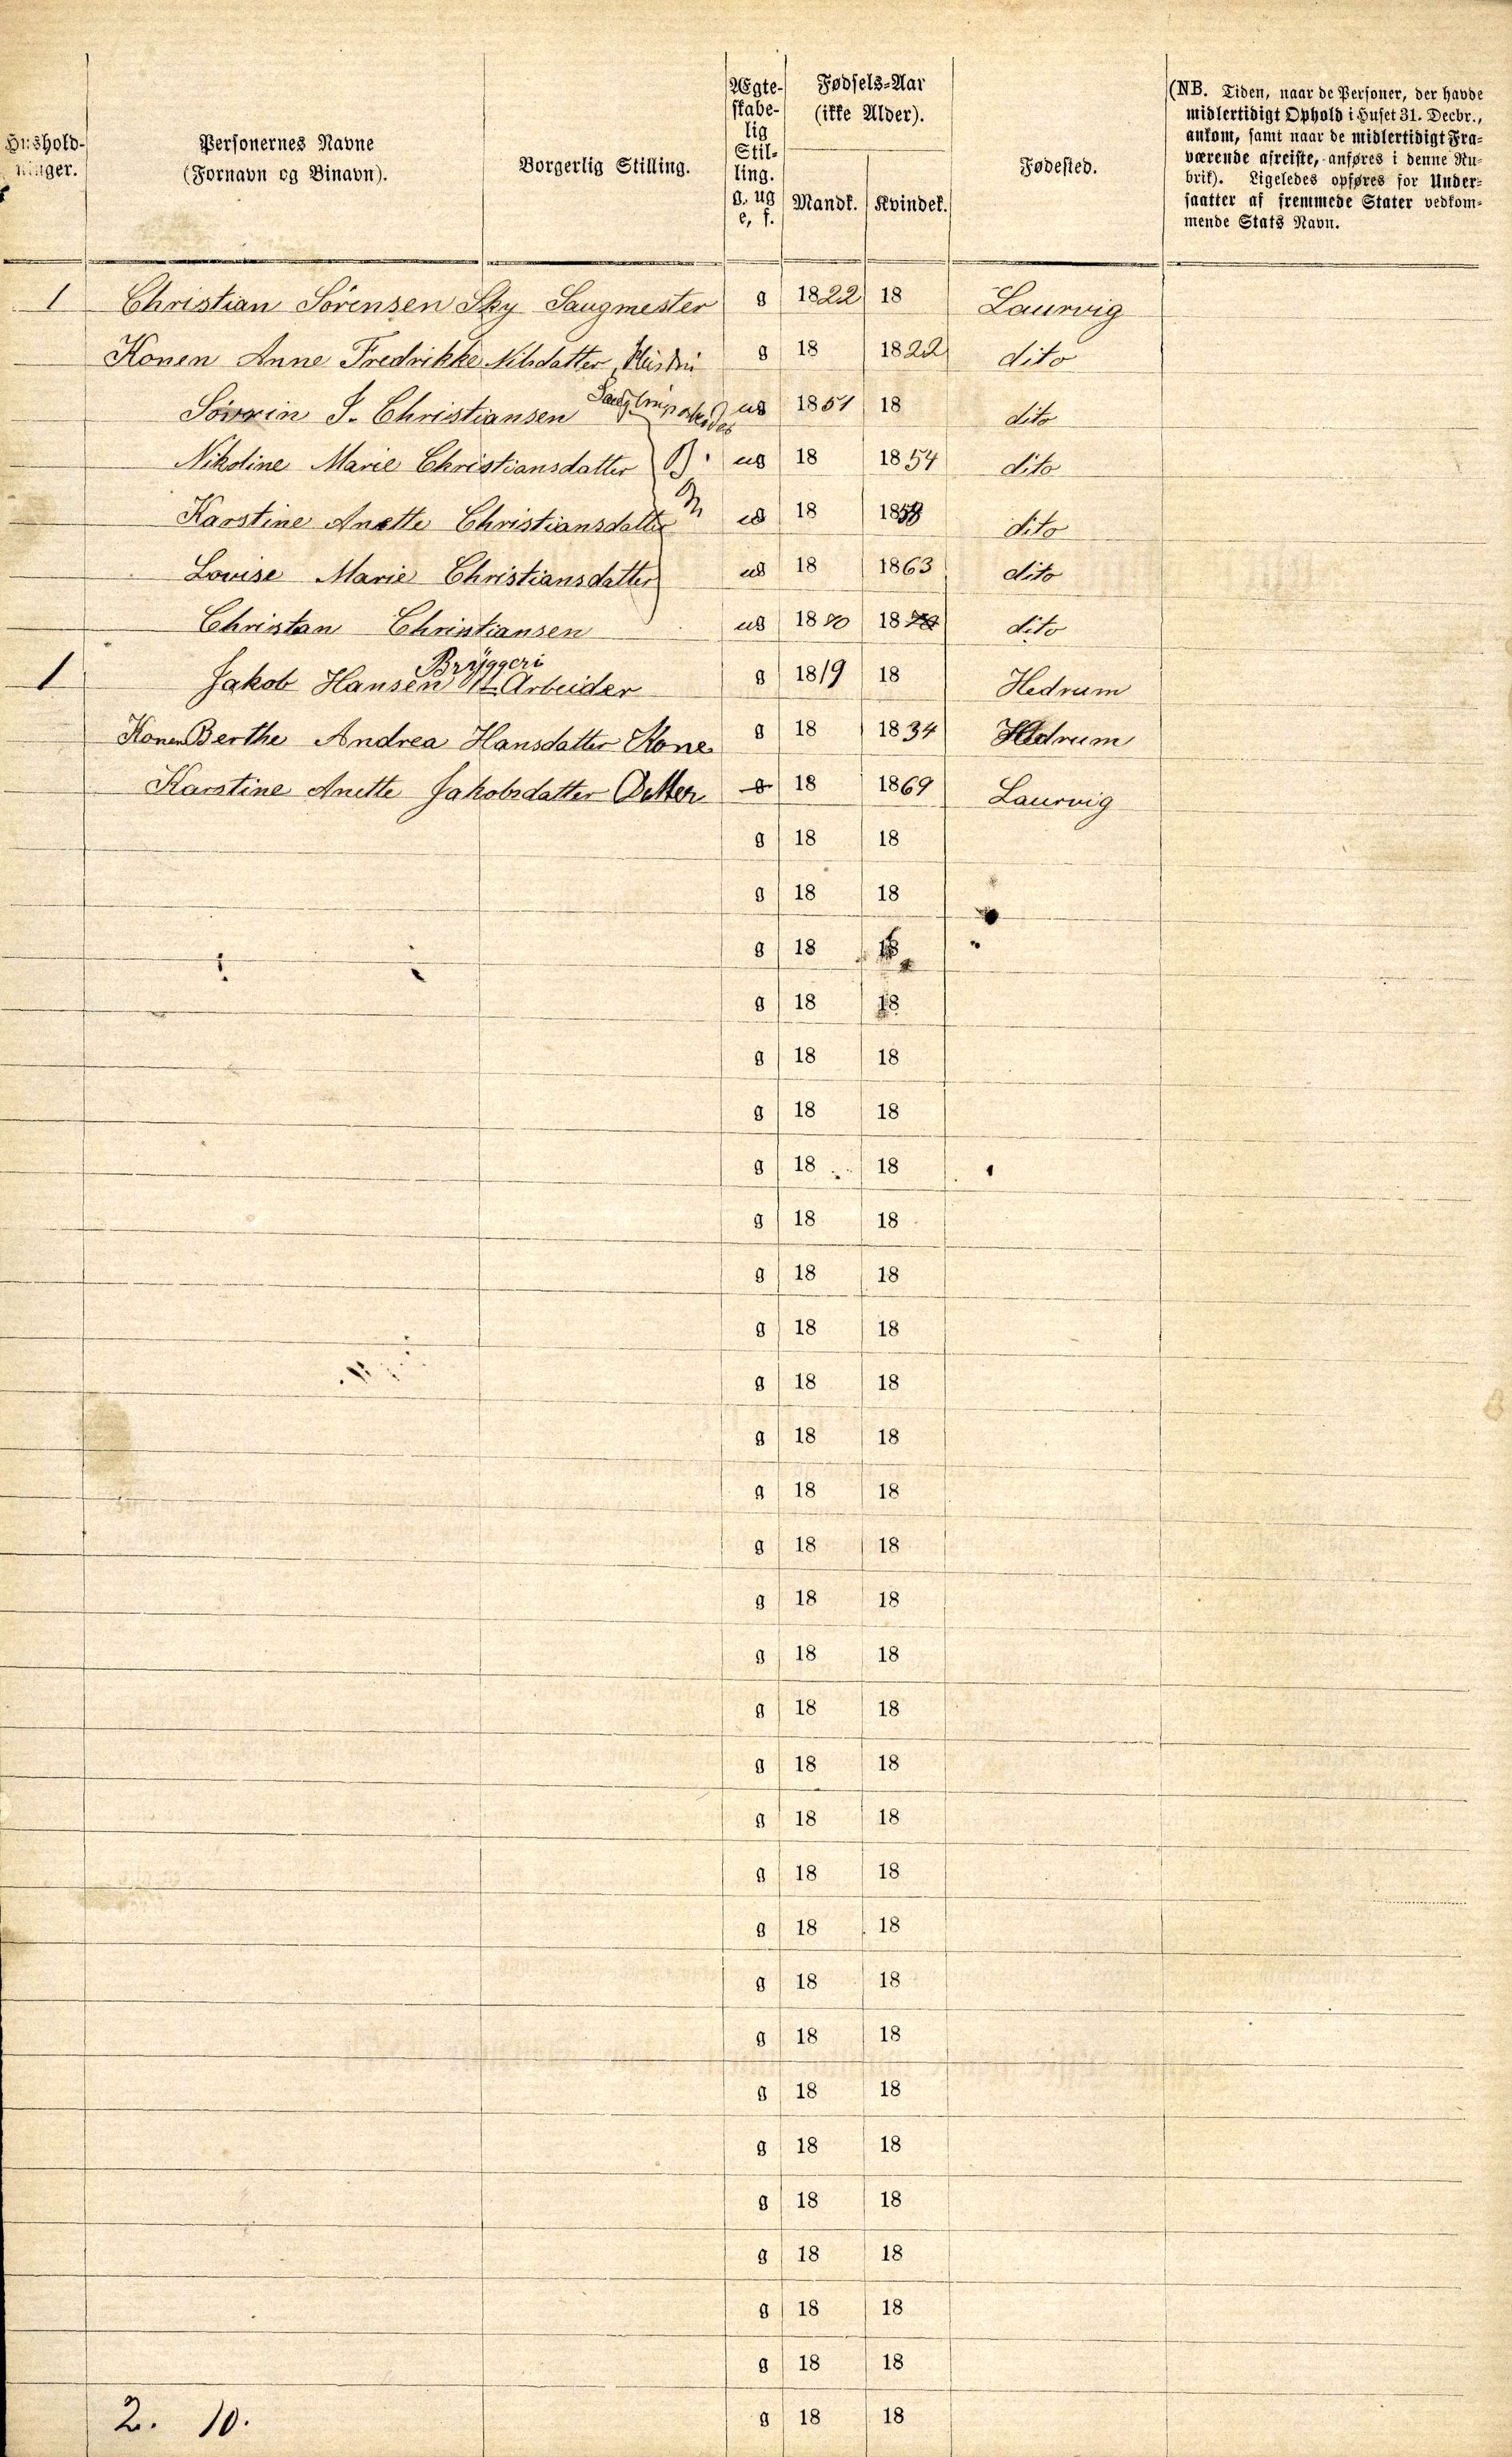 Hushold-
ninger.
Personernes Navne
(Fornavn og Binavn).
Borgerlig Stilling.
Ægte-
skabe-
lig
Stil-
ling.
g. ug
e, f.
Fødsels-Aar
(ikke Alder).
Mandk. Kvindek.
Fødested.
(NB. Tiden, naar de Personer, der havde
midlertidigt Ophold i Huset 31. Decbr.,
ankom, samt naar de midlertidigt Fra-
værende afreiste, anføres i denne Ru-
brik). Ligeledes opføres for Under-
saatter af fremmede Stater vedkom-
mende Stats Navn.
1 Christian Sörensen Sky Saugmester g 1822 18 Laurvig
Konen Anne Fredrikke Nilsdatter, Hustru g 18 1822 dito
Sövrin S. Christiansen ug 1851 18 dito
Nikoline Marie Christiansdatter B. ug 18 1854 dito
Karstine Anette Christiansdatter ug 18 1858 dito
Lovise Marie Christiansdatter ug 18 1863 dito
Christan Christiansen ug 1880 18 dito
Bryggeri
1 Jakob Hansen Arbeider g 1819 18 Hedrum
Konen Berthe Andrea Hansdatter Kone g 18 1834 Hedrum
Karstine Anette Jakobsdatter Datter g 18 1869 Laurvig
g 18 18
g 18 18
g 18 18
g 18 18
g 18 18
g 18 18
g 18 18
g 18 18
g 18 18
g 18 18
g 18 18
g 18 18
g 18 18
g 18 18
g 18 18
g 18 18
g 18 18
g 18 18
g 18 18
g 18 18
g 18 18
g 18 18
g 18 18
g 18 18
g 18 18
g 18 18
g 18 18
g 18 18
g 18 18
2. 10. g 18 18